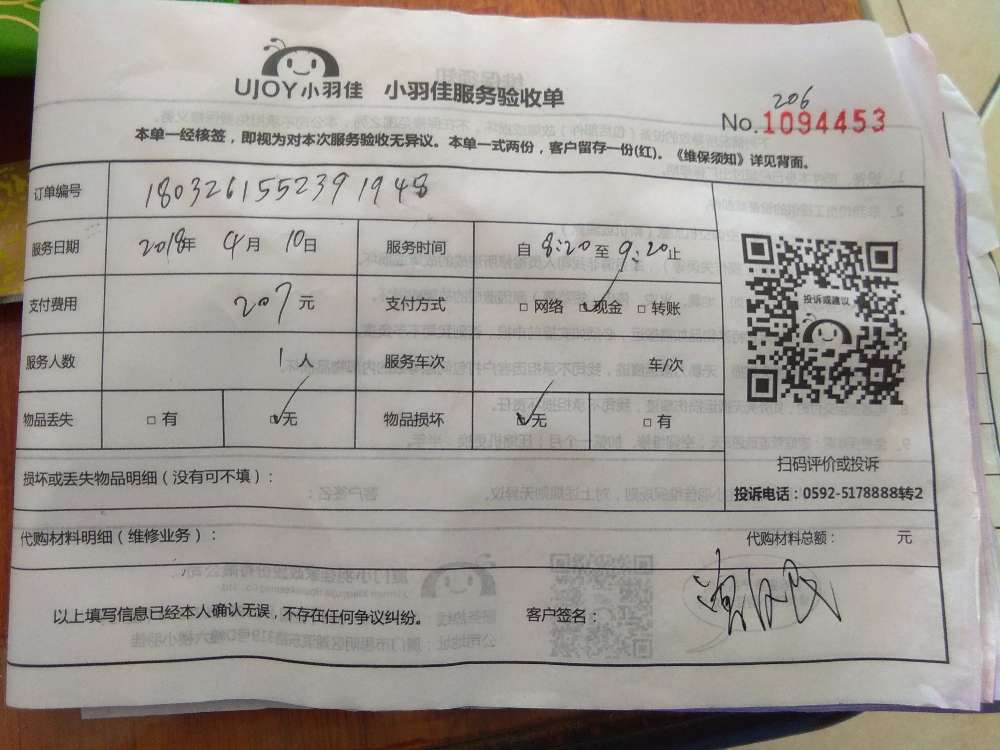 UJOY小羽佳 小羽佳服务验收单
206
No.1094453
本单一经核签，即视为对本次服务验收无异议。本单一式两份，客户留存一份(红)。《维保须知》详见背面。
订单编号 180326155239 1948
服务日期 2018年 4月 10日 服务时间 自 8:20 至 9:20止
支付费用 207 元 支付方式 □ 网络 ☑现金 □ 转账
服务人数 1 人 服务车次 车/次
物品丢失 □ 有 ☑无 物品损坏 ☑无 □ 有
投诉或建议
扫码评价或投诉
投诉电话：0592-5178888转2
损坏或丢失物品明细（没有可不填）：
代购材料明细（维修业务）： 代购材料总额： 元
以上填写信息已经本人确认无误，不存在任何争议纠纷。 客户签名：